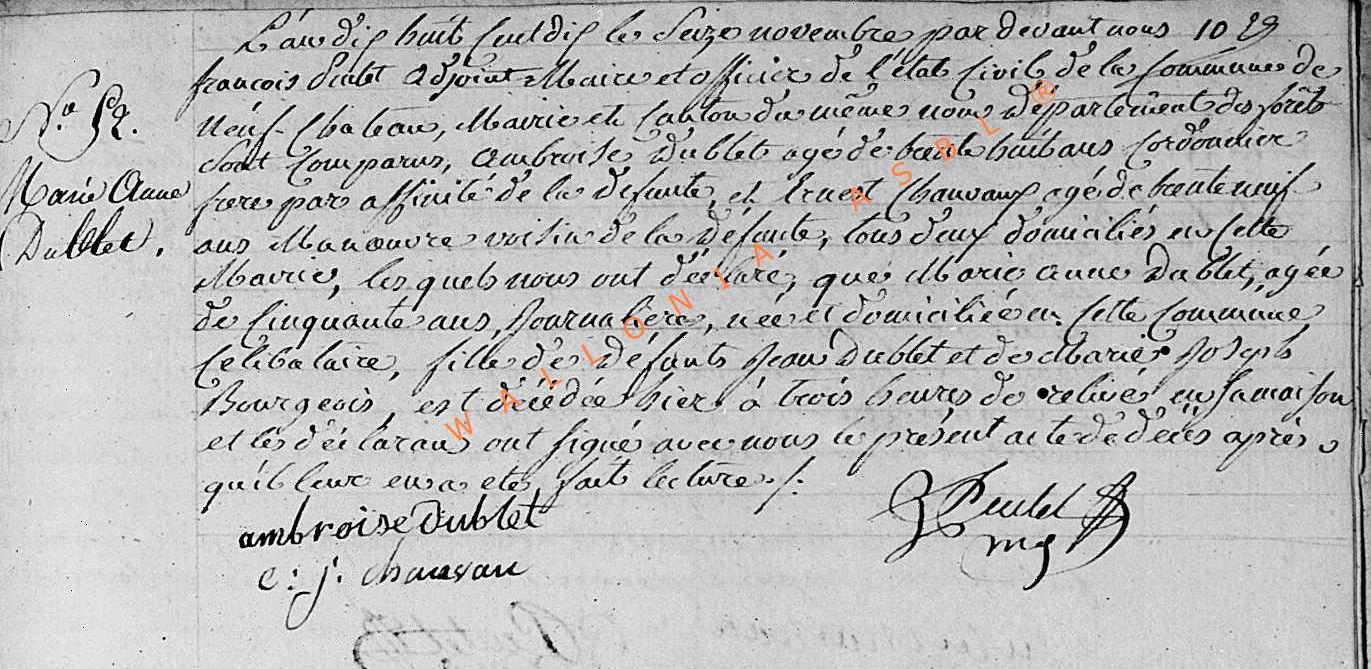 L'an dix huit cent dix le seize novembre par devant nous
françois adjoint Maire et officier de l'état Civil de la Commune de
Neuf-Chateau, Mairie et Canton du même nom, département des forêts
N.° 52.
sont comparus, Ambroise Dublet agé de trente huit ans Cordonnier
Marie Anne
frere par affinité de la défunte, et Ernest Chauvaux agé de trente neuf
Dublet.
ans Manoeuvre voisin de la défunte, tous deux domiciliés en cette
Mairie, les quels nous ont déclaré, que Marie Anne Dublet, agée
de Cinquante ans, Journaliere, née et domiciliée en cette Commune,
Célibataire, fille de défunts Jean Dublet et de Marie Joseph
Bourgeois, est décédée hier à trois heures de relivée en sa maison
et les déclarans ont signé avec nous le présent acte de décès après
qu'il leur en a été fait lecture ./.
ambroise Dublet
e: j. chauvau
WALLONIA ASBL ®